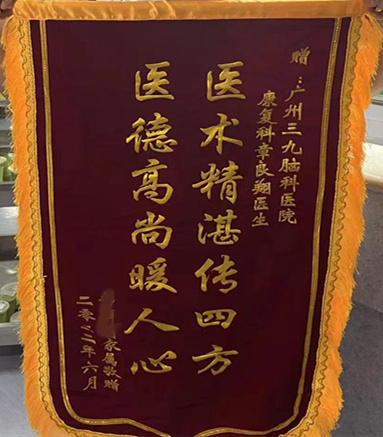 赠：广州三九脑科医院
康复科章良翔医生
医术精湛传四方
医德高尚暖人心
家属敬赠
二零二二年六月